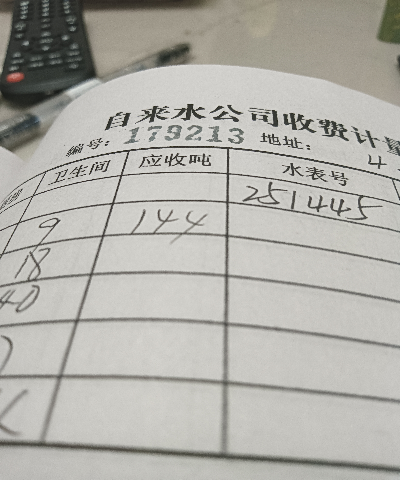 自来水公司收费计量
编号: 179213 地址: 4
卫生间 应收吨 水表号
251445
9 144
18
40